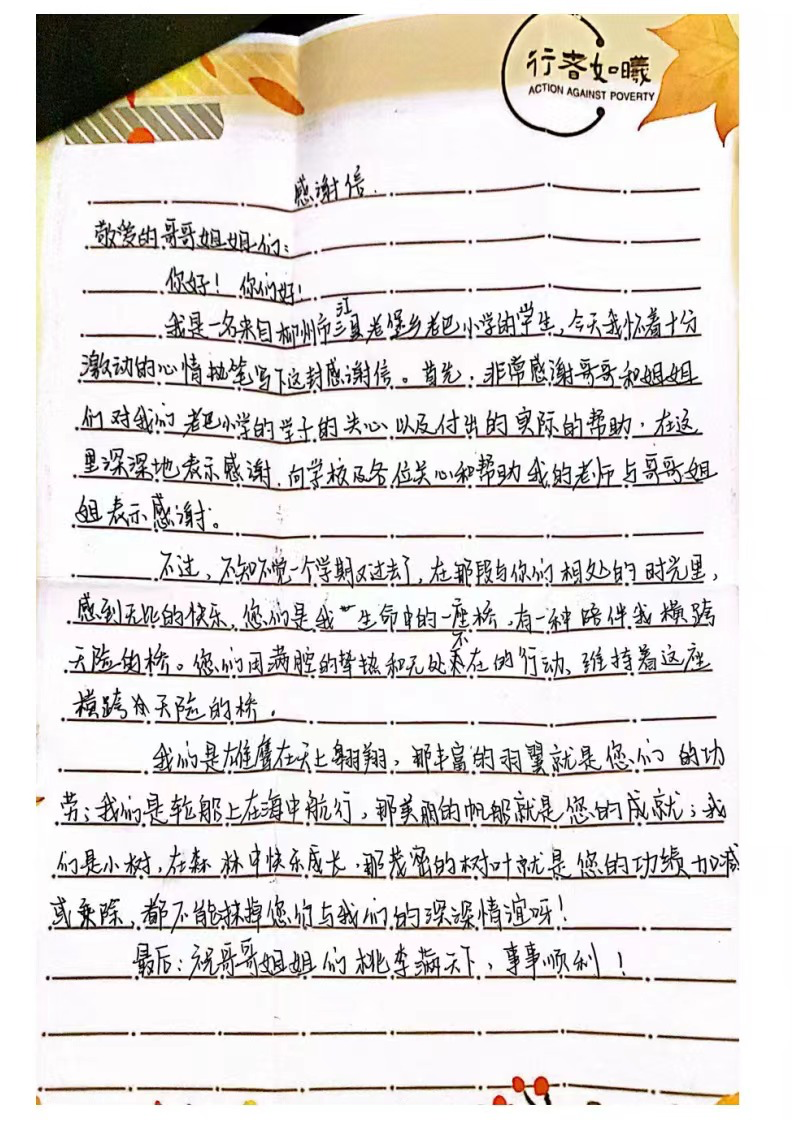 行者如曦
ACTION AGAINST POVERTY
感谢信.
敬爱的哥哥姐姐们:
你好！你们好！
我是一名来自柳州市三江县老堡乡老巴小学的学生，今天我怀着十分
激动的心情执笔写下这封感谢信。首先，非常感谢哥哥和姐姐
们对我们老巴小学的学子的关心以及付出的实际的帮助，在这
里深深地表示感谢，向学校及各位关心和帮助我的老师与哥哥姐
姐表示感谢。
不过，不知不觉一个学期又过去了，在那段与你们相处的时光里，
感到无比的快乐，您们是我生命中的一座桥，有一种陪伴我横跨
天险的桥。您们用满腔的挚热和无处不在的行动、维持着这座
横跨天险的桥，
我们是雄鹰在天上翱翔，那丰富的羽翼就是您们的功
劳；我们是轮船上在海中航行，那美丽的帆船就是您的成就；我
们是小树，在森林中快乐成长，那茂密的树叶就是您的功绩加减
或乘除，都不能抹掉您们与我们的深深情谊呀！
最后：祝哥哥姐姐们桃李满天下，事事顺利！